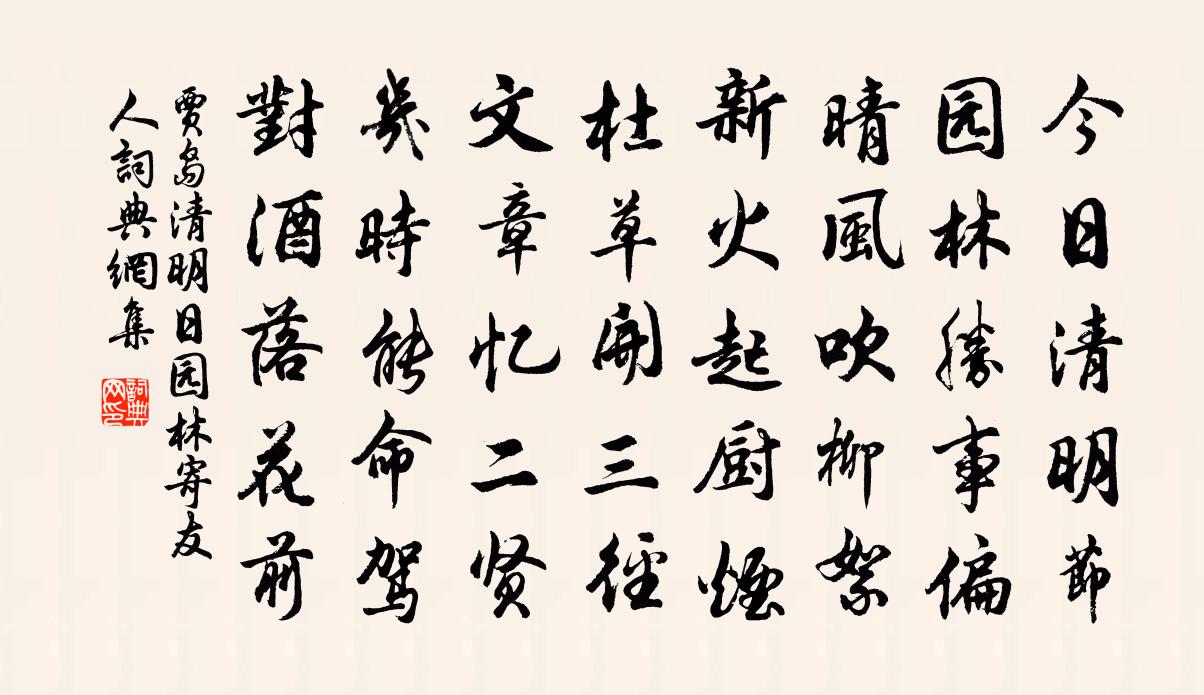 今日清明節
园林勝事偏
晴風吹柳絮
新火起厨煙
杜草開三徑
文章忆二贤
幾時能命駕
對酒落花前
賈島清明日园林寄友
人詞典網集
詞典网印